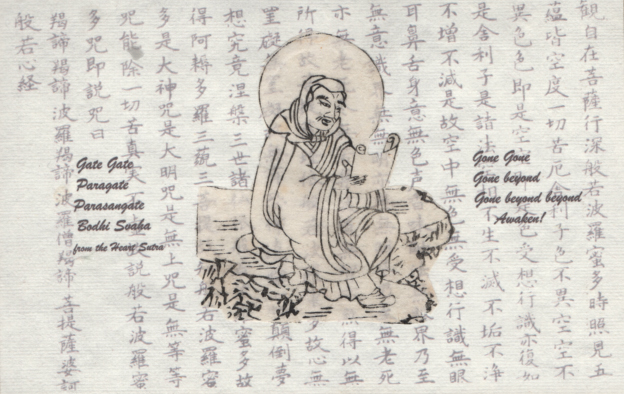 觀自在菩薩行深般若波羅蜜多時照見五
蘊皆空度一切苦厄舍利子色不異空空不
異色色即是空 色受想行識亦復如
是舍利子是諸 不生不滅不垢不淨
不增不減是故空中無色無受想行識無眼
耳鼻舌身意無色声 界乃至
無意識 無老死
亦無老 得以無
所得故 多故心無
罣礙 顛倒夢
想究竟涅槃三世諸 蜜多故
得阿耨多羅三藐三 般若波羅蜜
多是大神咒是大明咒是無上咒是無等等
咒能除一切苦真実 說般若波羅蜜
多咒即說咒曰
羯諦羯諦波羅羯諦波羅僧羯諦菩提薩婆訶
般若心経
Gate Gate
Paragate
Parasangate
Bodhi Svaha
from the Heart Sutra
Gone Gone
Gone beyond
Gone beyond beyond
Awaken!